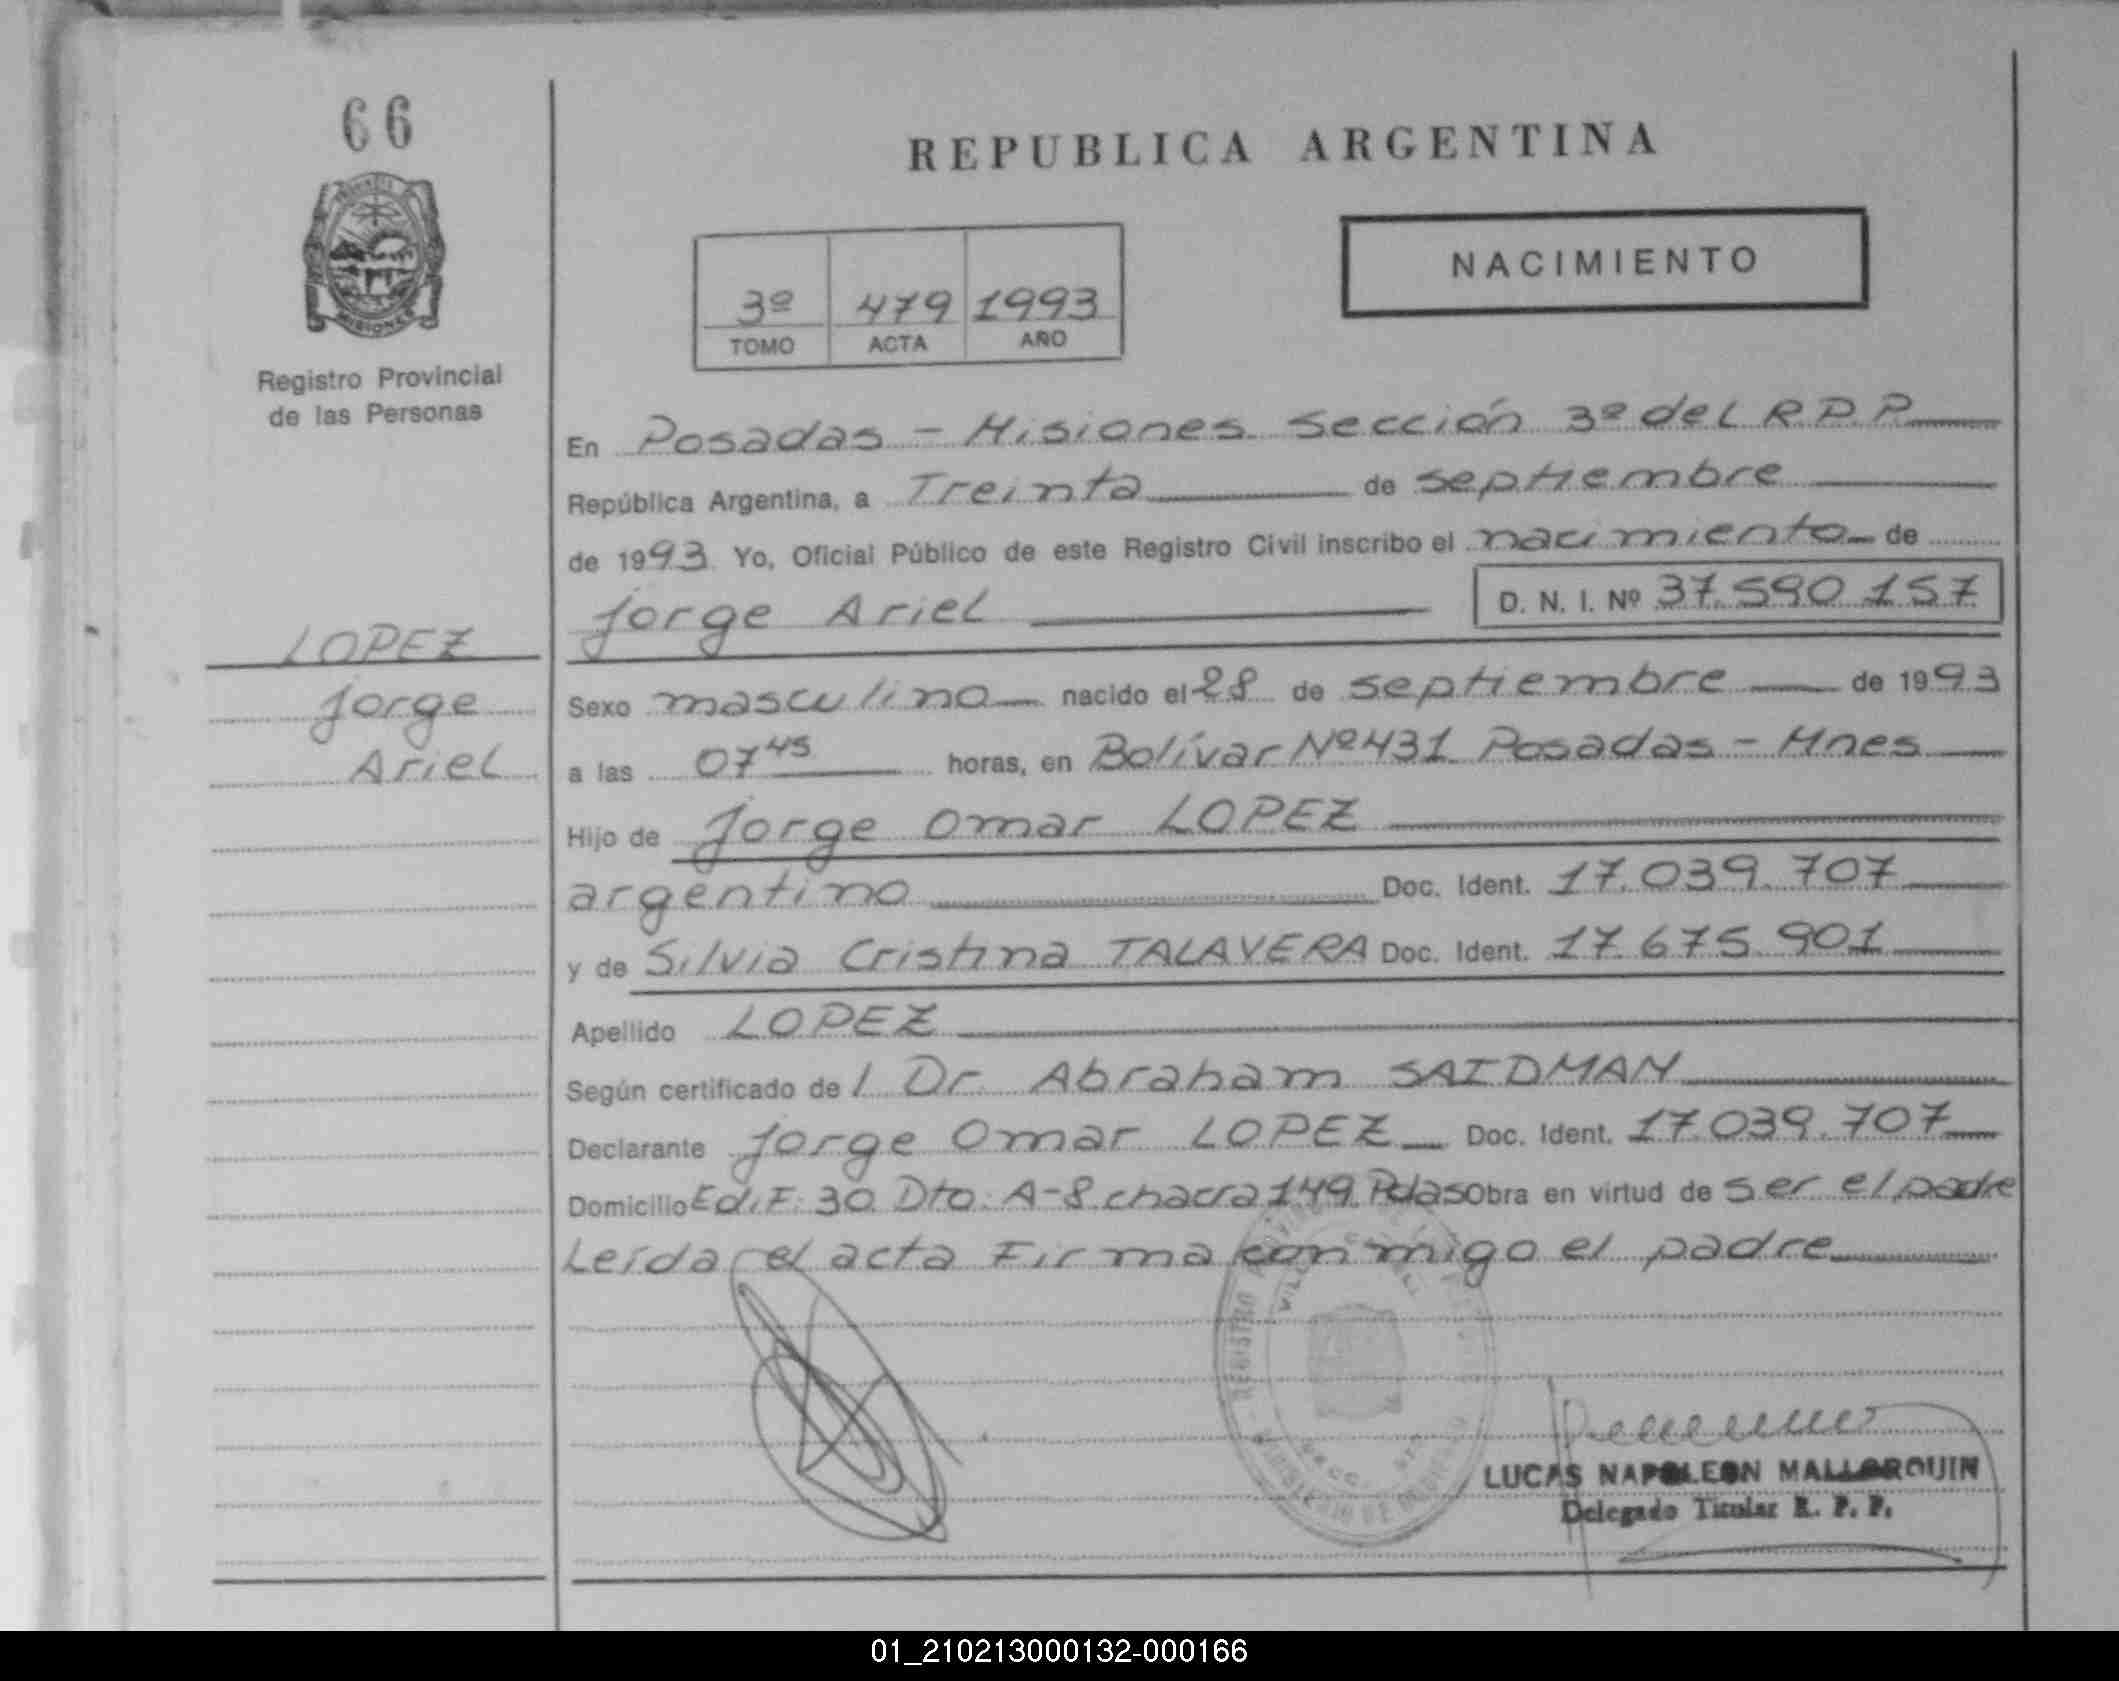 66
REPUBLICA ARGENTINA
NACIMIENTO
3º 479 1993
TOMO ACTA AÑO
MISIONES
Registro Provincial
de las Personas
En Posadas - Misiones Sección 3º del R.P.P.
República Argentina, a Treinta de septiembre
de 1993 Yo, Oficial Público de este Registro Civil inscribo el nacimiento de
Jorge Ariel D. N. I. Nº 37.590.157
LOPEZ
Jorge
Ariel
Sexo masculino nacido el 28 de septiembre de 1993
a las 07 45 horas, en Bolívar Nº 431 Posadas - Mnes
Hijo de Jorge Omar LOPEZ
argentino Doc. Ident. 17.039.707
y de Silvia Cristina TALAVERA Doc. Ident. 17.675.901
Apellido LOPEZ
Según certificado de l Dr. Abraham SAIDMAN
Declarante Jorge Omar LOPEZ Doc. Ident. 17.039.707
Domicilio Edif. 30 Dto. A-8 chacra 149 Pdas Obra en virtud de ser el padre
Leída el acta Firma conmigo el padre
REGISTRO
LUCAS NAPOLEON MALLORQUIN
Delegado Titular R. P. P.
01_210213000132-000166